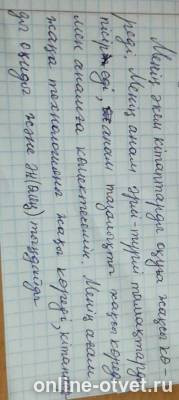 Менің әкем кітаптарды оқуға жақсы кө-
реді. Менің анам әрті-түрлі тамақтарды
пісіреді, анам тазалықты жақсы көреді
мен анамға көмектесемін. Менің ағам
жаңа технологияны жақсы көреді, кітапты
да оқиды және ән(өлең) тыңдайды
online-otvet.ru